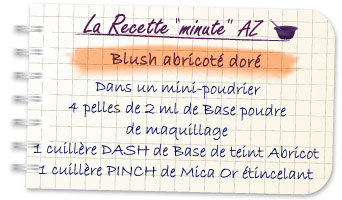 La Recette "minute" AZ
Blush abricoté doré
Dans un mini-poudrier
4 pelles de 2 ml de Base poudre
de maquillage
1 cuillère DASH de Base de teint Abricot
1 cuillère PINCH de Mica Or étincelant